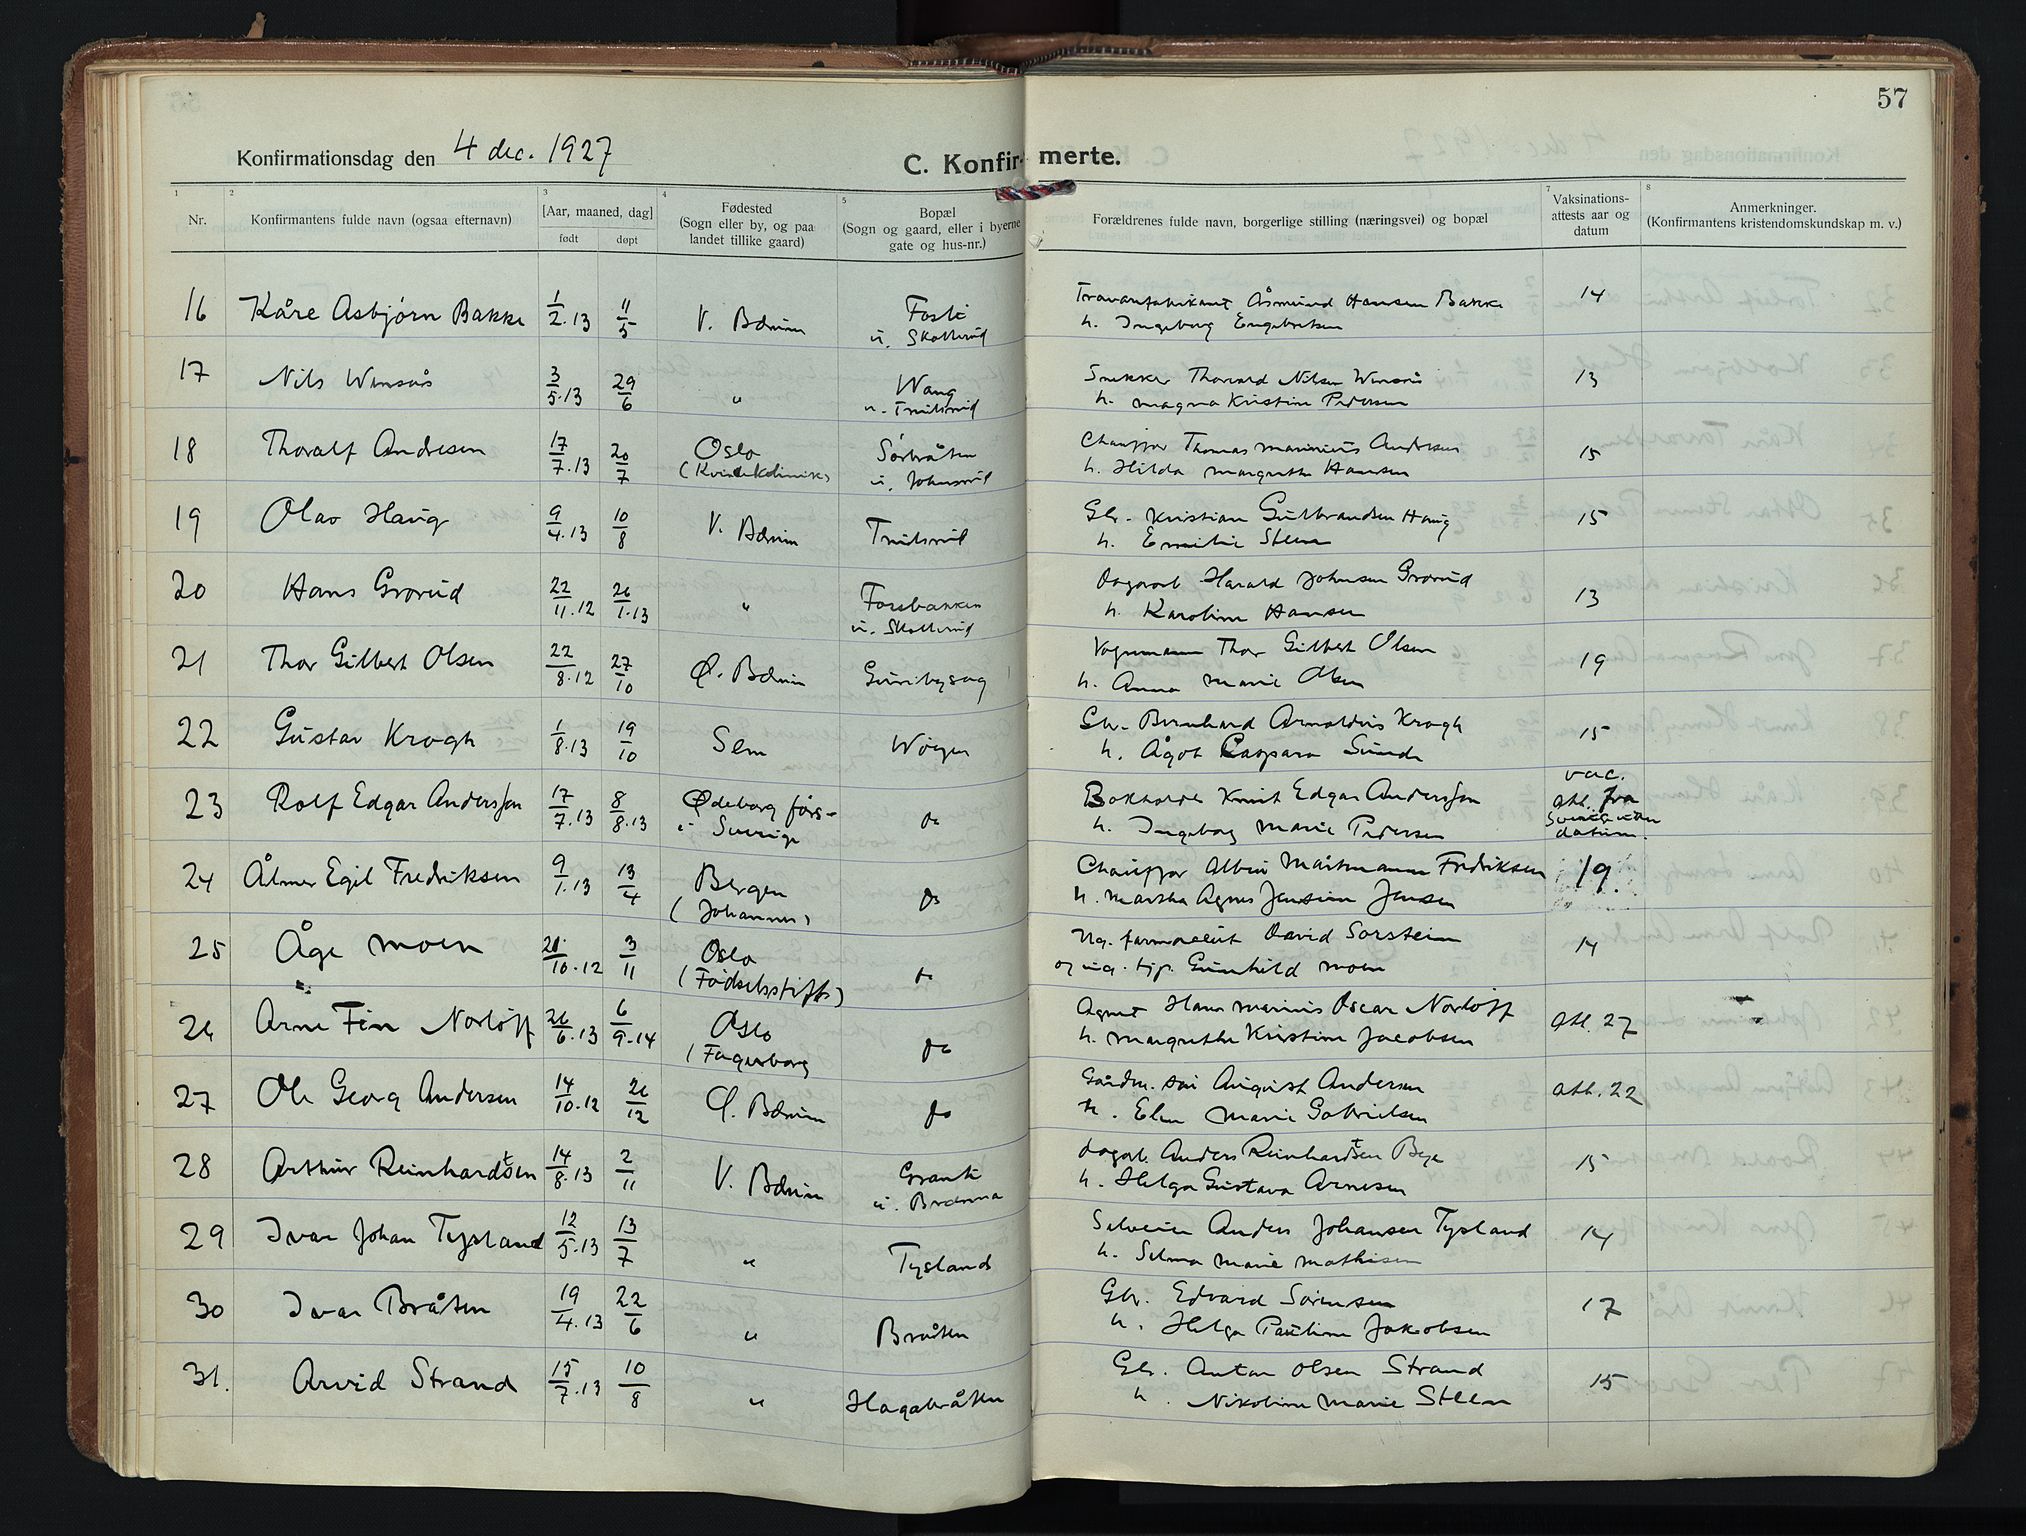 57
Konfirmationsdag den 4 dec. 1927
C. Konfirmerte.
1 2 3 4 5 7 8
Nr.
Konfirmantens fulde navn (ogsaa efternavn)
[Aar, maaned, dag]
født døpt
Fødested
(Sogn eller by, og paa
landet tillike gaard)
Bopæl
(Sogn og gaard, eller i byerne
gate og hus-nr.)
Forældrenes fulde navn, borgerlige stilling (næringsvei) og bopæl
Vaksinations-
attests aar og
datum
Anmerkninger.
(Konfirmantens kristendomskundskap m. v.)
16 Kåre Asbjørn Bakke 1/2.13 11/5 V. Bærum Åsmund Hansen Bakke 14
u. Skotterud h. Ingeborg Engebretsen
17 Nils Winsnås 3/5.13 29/6 " Wang Snekker Thorvald Nilsen 13
h. Magna Kristine Pedersen
18 Thoralf Andresen 17/7.13 20/7 Oslo Sørbråten Chauffør Thomas Marinius Andresen 15
(Kvindeklinik) h. Hilda Margrethe Hansen
19 Olav Haug 9/4.13 10/8 V. Bærum Gbr. Kristian Gulbrandsen Haug 15
h. Emilie Steen
20 Hans Grorud 22/11.12 26/1.13 " Fossbakken Harald Johnsen Grorud 13
u. Skotterud h. Karoline Hansen
21 Thor Gilbert Olsen 22/8.12 27/10 Ø. Bærum Guribysag Vognmann Thor Gilbert Olsen 19
h. Anna Marie Olsen
22 Gustav Krogh 1/8.13 19/10 Sem Wøyen Gbr. Bernhard Arnoldus Krogh 15
h. Ågot Caspara Sunde
23 Rolf Edgar Andersson 17/7.13 8/8.13 Ødeborg førs- do Bokholder Knut Edgar Andersson vac.
i Sverige h. Ingeborg Marie Pedersen att. fra
Sverige uten
datum.
24 Ålmer Egil Fredriksen 9/1.13 13/4 Bergen do Chauffør Albin Fredriksen 19.
(Johannes) h. Martha Agnes Jensine Jensen
25 Åge Moen 20/10.12 3/11 Oslo do Ug. farmaceut David Sorstein 14
(Fødselsstift.) og ug. tjp. Gunhild Moen
26 Arne Finn Norløff 26/6.13 6/9.14 Oslo do Agent Hans Marius Oscar Norløff att. 27
(Fagerborg) h. Margrethe Kristine Jacobsen
27 Ole Georg Andersen 14/10.12 26/12 Ø. Bærum do August Andersen att. 22
h. Elen Marie Gabrielsen
28 Arthur Reinhardtsen 14/8.13 2/11 V. Bærum Anders Reinhardtsen Bye 15
h. Helga Gustava Arnesen
29 Ivar Johan Tysland 12/5.13 13/7 " Tyslands Anders Johansen Tysland 14
h. Selma Marie Mathisen
30 Ivar Bråten 19/4.13 22/6 " Bråten Gbr. Edvard Sørensen 17
h. Helga Pauline Jakobsen
31. Arvid Strand 15/7.13 10/8 " Hagabråten Gbr. Anton Olsen Strand 15
h. Nikoline Marie Steen